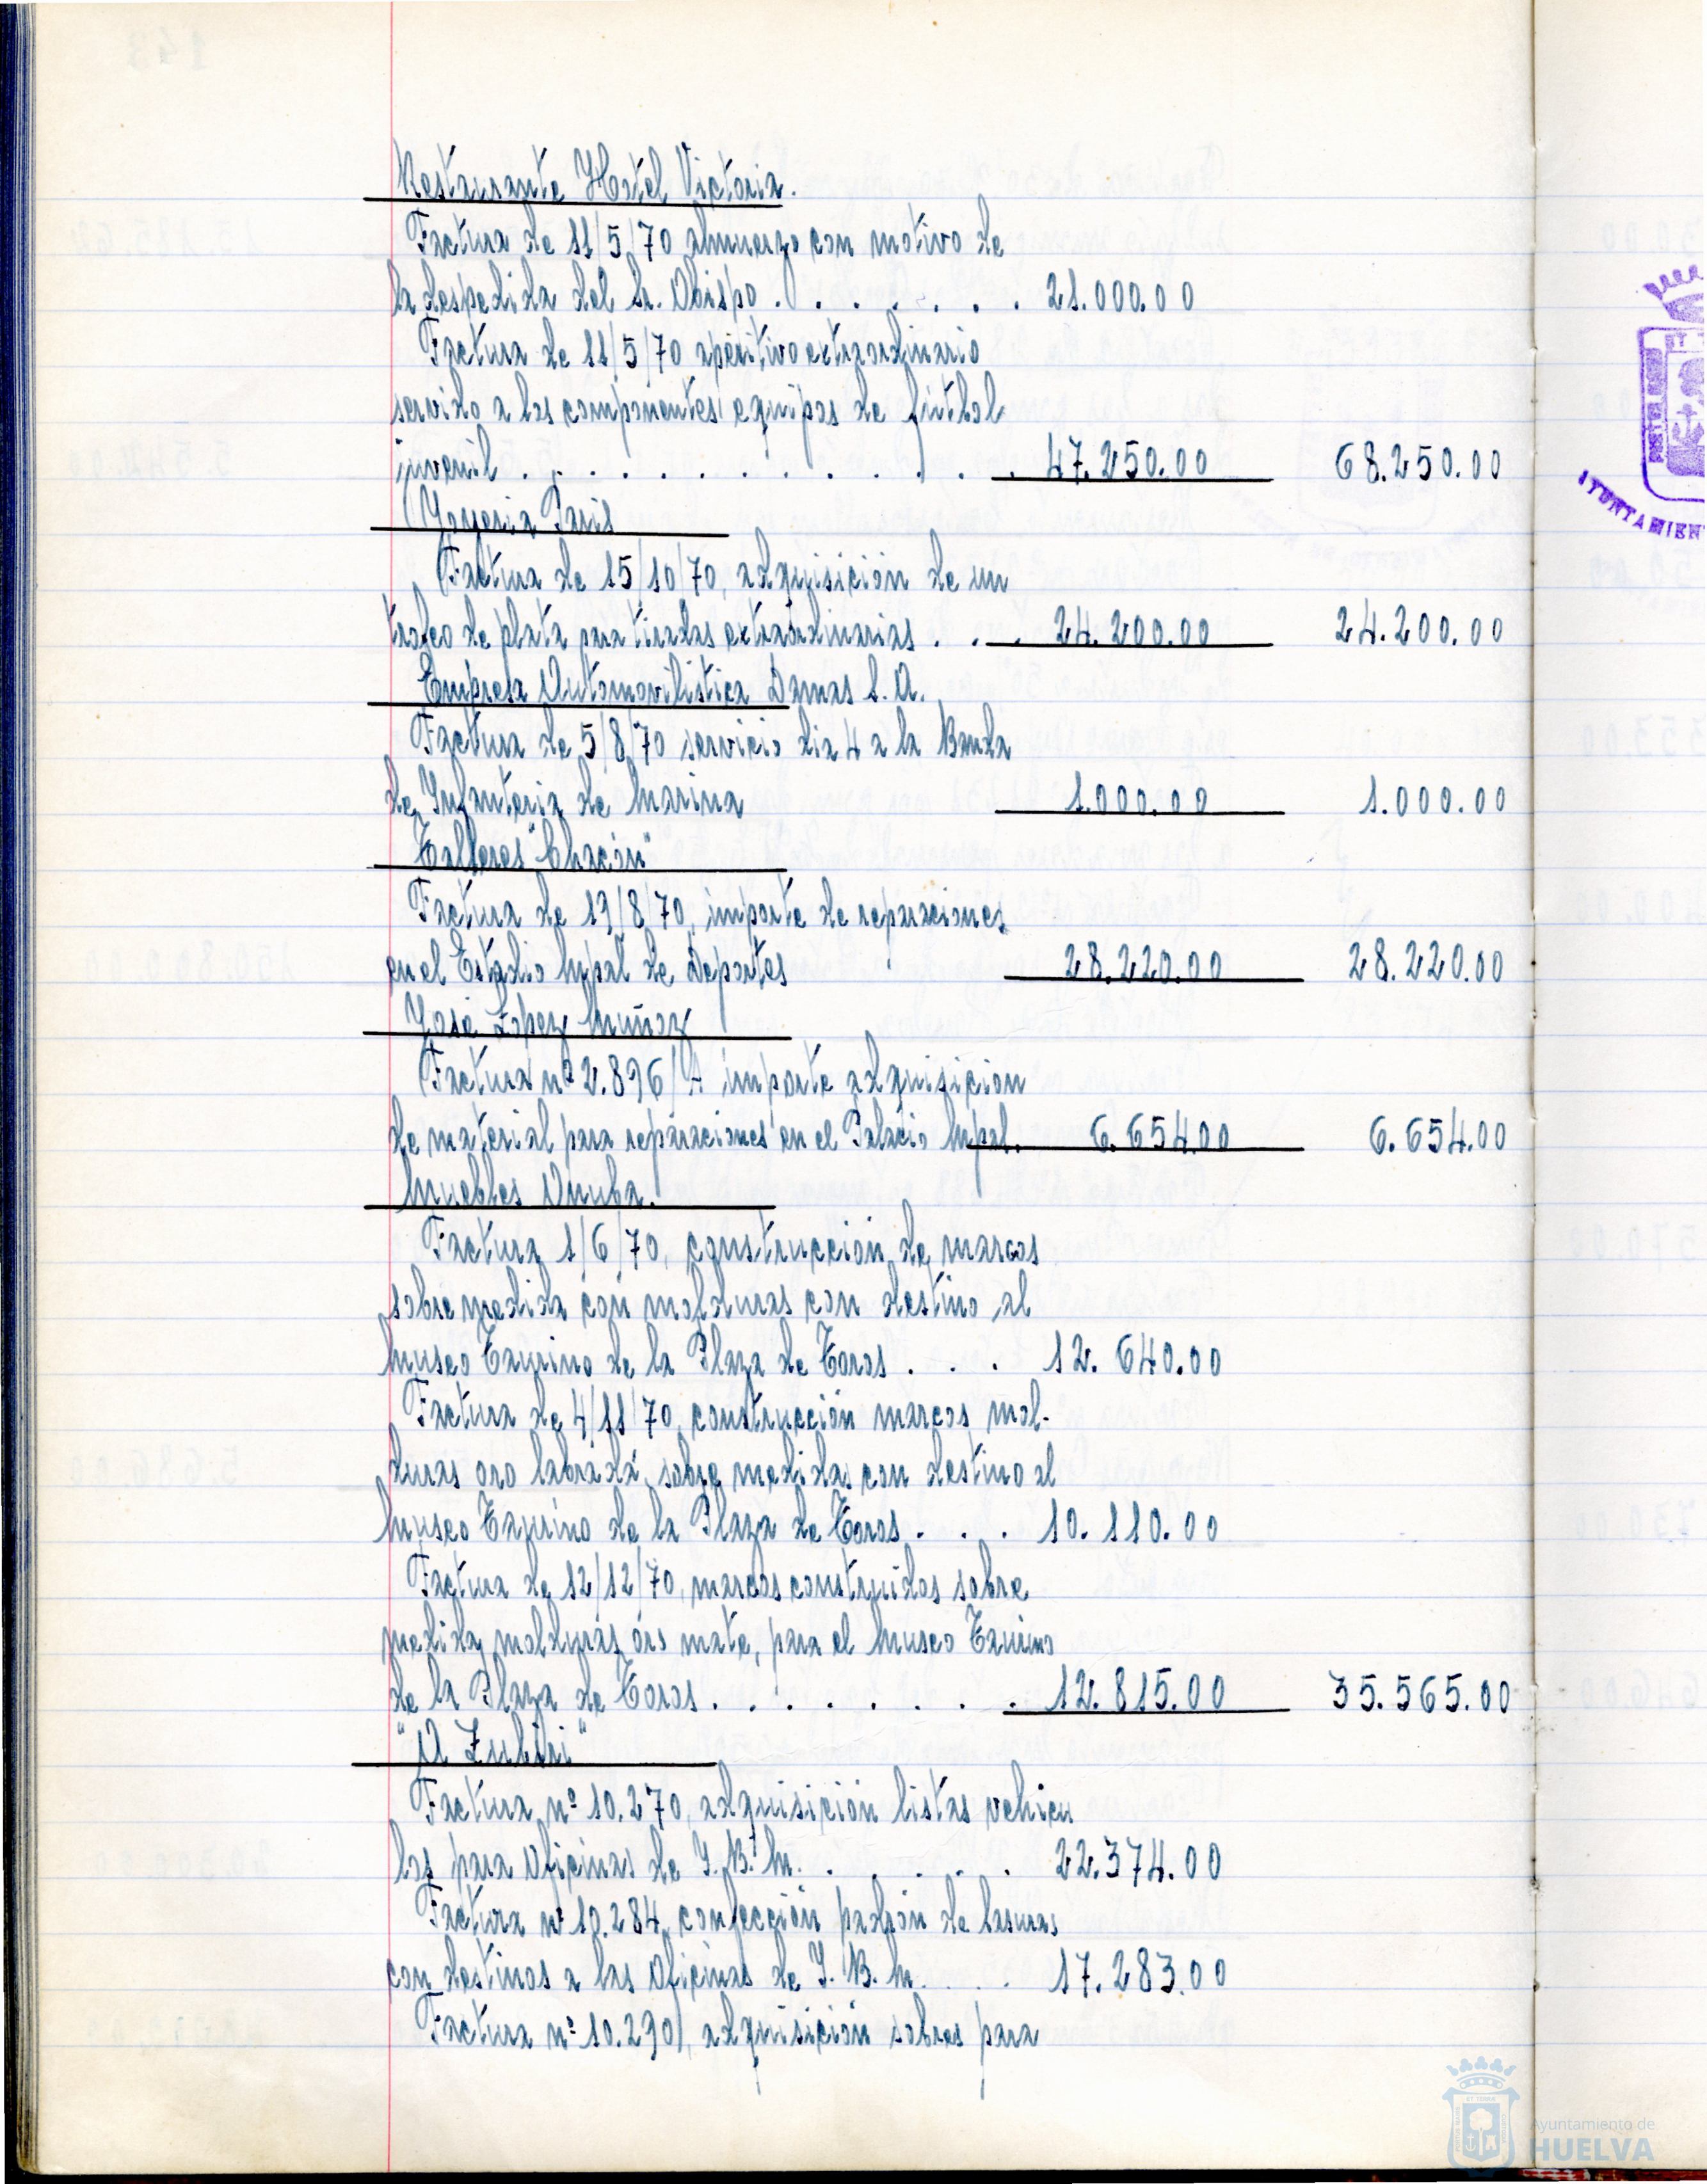 Restaurante Hotel Victoria.
Factura de 11/5/70 almuerzo con motivo de
la despedida del Sr. Obispo . . . . . . . 21.000.00
Factura de 11/5/70 aperitivo extraordinario
servido a los componentes equipos de futbol
juvenil . . . . . . . . . . . . . 47.250.00 68.250.00
Joyeria Paris
Factura de 15/10/70, adquisición de un
trofeo de plata para tiradas extraordinarias . . . 24.200.00 24.200.00
Empresa Automovilistica Damas S.A.
Factura de 5/8/70 servicio dia 4 a la Banda
de Infanteria de Marina 1.000.00 1.000.00
Talleres "Chacón"
Factura de 19/8/70, importe de reparaciones
en el Estadio Mpal de Deportes 28.220.00 28.220.00
José López Muñoz
Factura nº 2.896/A importe adquisicion
de material para reparaciones en el Palacio Mpal. 6.654.00 6.654.00
Muebles Onuba.
Factura 1/6/70, construcción de marcos
sobre medida con molduras con destino al
Museo Taurino de la Plaza de Toros . . . 12.640.00
Factura de 4/11/70, construcción marcos mol-
duras oro labrada, sobre medidas con destino al
Museo Taurino de la Plaza de Toros . . . 10.110.00
Factura de 12/12/70, marcos construidos sobre
medida, molduras oro mate, para el Museo Taurino
de la Plaza de Toros . . . . . . . 12.815.00 35.565.00
Factura nº 10.270, adquisición listas vehicu
los para Oficinas de I.B.M. . . . . . 22.374.00
Factura nº 10.284, confección padrón de basuras
con destinos a las Oficinas de I.B.M. . . 17.283.00
Factura nº 10.290, adquisición sobres para
AYUNTAMIEN
Ayuntamiento de
HUELVA